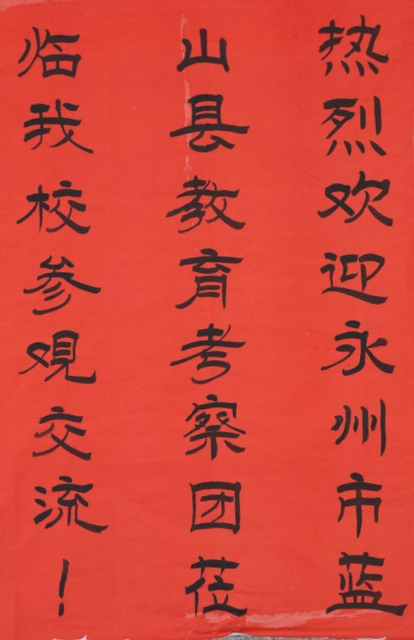 热烈欢迎永州市蓝
山县教育考察团莅
临我校参观交流！